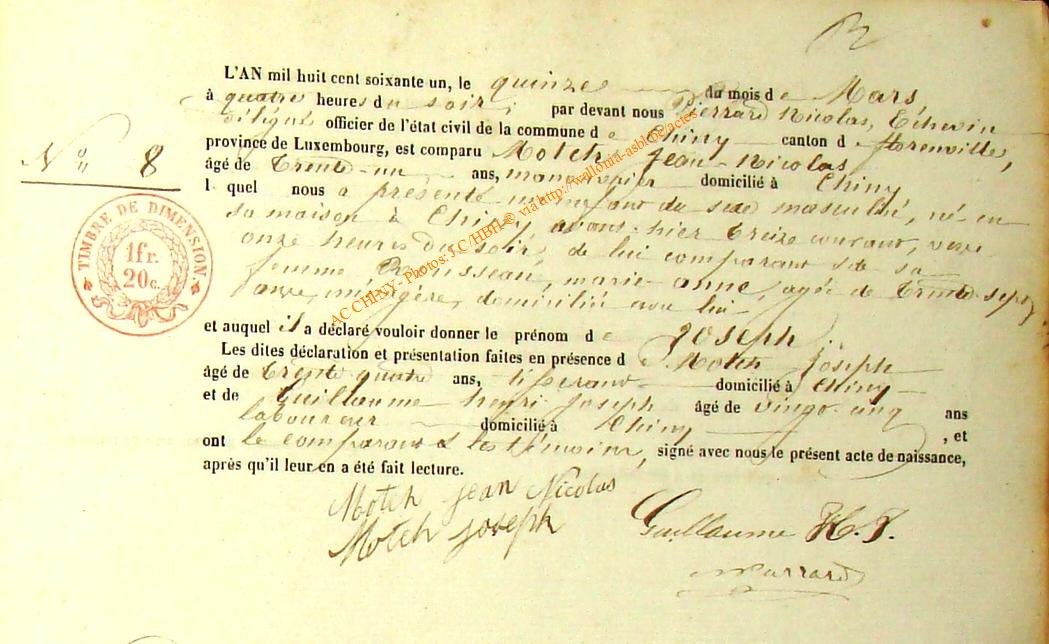 L'AN mil huit cent soixante un, le quinze du mois de Mars
à quatre heures du soir, par devant nous Pierrard Nicolas, Echevin
délégué officier de l'état civil de la commune de Chiny canton de florenville,
N° 8
province de Luxembourg, est comparu Motch Jean-Nicolas
âgé de trente-un ans, manouvrier domicilié à Chiny
lequel nous a présenté un enfant du sexe masculin, né en
sa maison à Chiny, avant-hier treize courant, vers
onze heures du soir, de lui comparant et de sa
femme Rousseau, marie-anne, agée de trente-sept
ans, ménagère, domiciliée avec lui
et auquel il a déclaré vouloir donner le prénom de Joseph
Les dites déclaration et présentation faites en présence de Motch Joseph
âgé de trente quatre ans, tisserand domicilié à Chiny
et de Guillaume henri Joseph âgé de vingt cinq ans
laboureur domicilié à Chiny, et
ont le comparant & les témoins, signé avec nous le présent acte de naissance,
après qu'il leur en a été fait lecture.
Motch jean Nicolas
Motch joseph
Guillaume H. J.
TIMBRE DE DIMENSION
1fr.
20c.
AC CHINY- Photos: J.C/HBH® via http://wallonia-asbl.be/actes